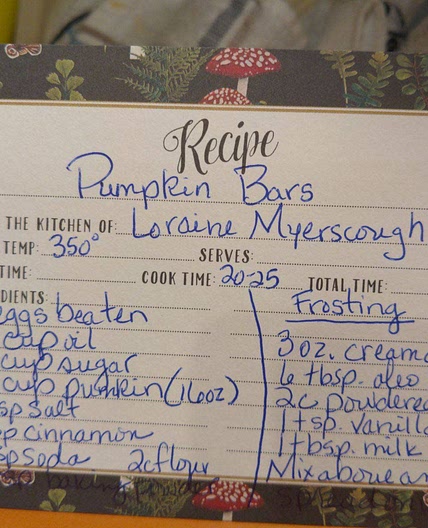 Recipe
Pumpkin Bars
THE KITCHEN OF: Loraine Myerscough
TEMP: 350° SERVES:
TIME: COOK TIME: 20-25 TOTAL TIME:
DIENTS: Frosting
eggs beaten
cup oil 3 oz. cream
cup sugar 6 tbsp. oleo
cup pumpkin (16oz) 2c powdered
sp salt 1 tsp. vanilla
p cinnamon 1 tbsp. milk
sp soda 2c flour Mix above an
baking powder